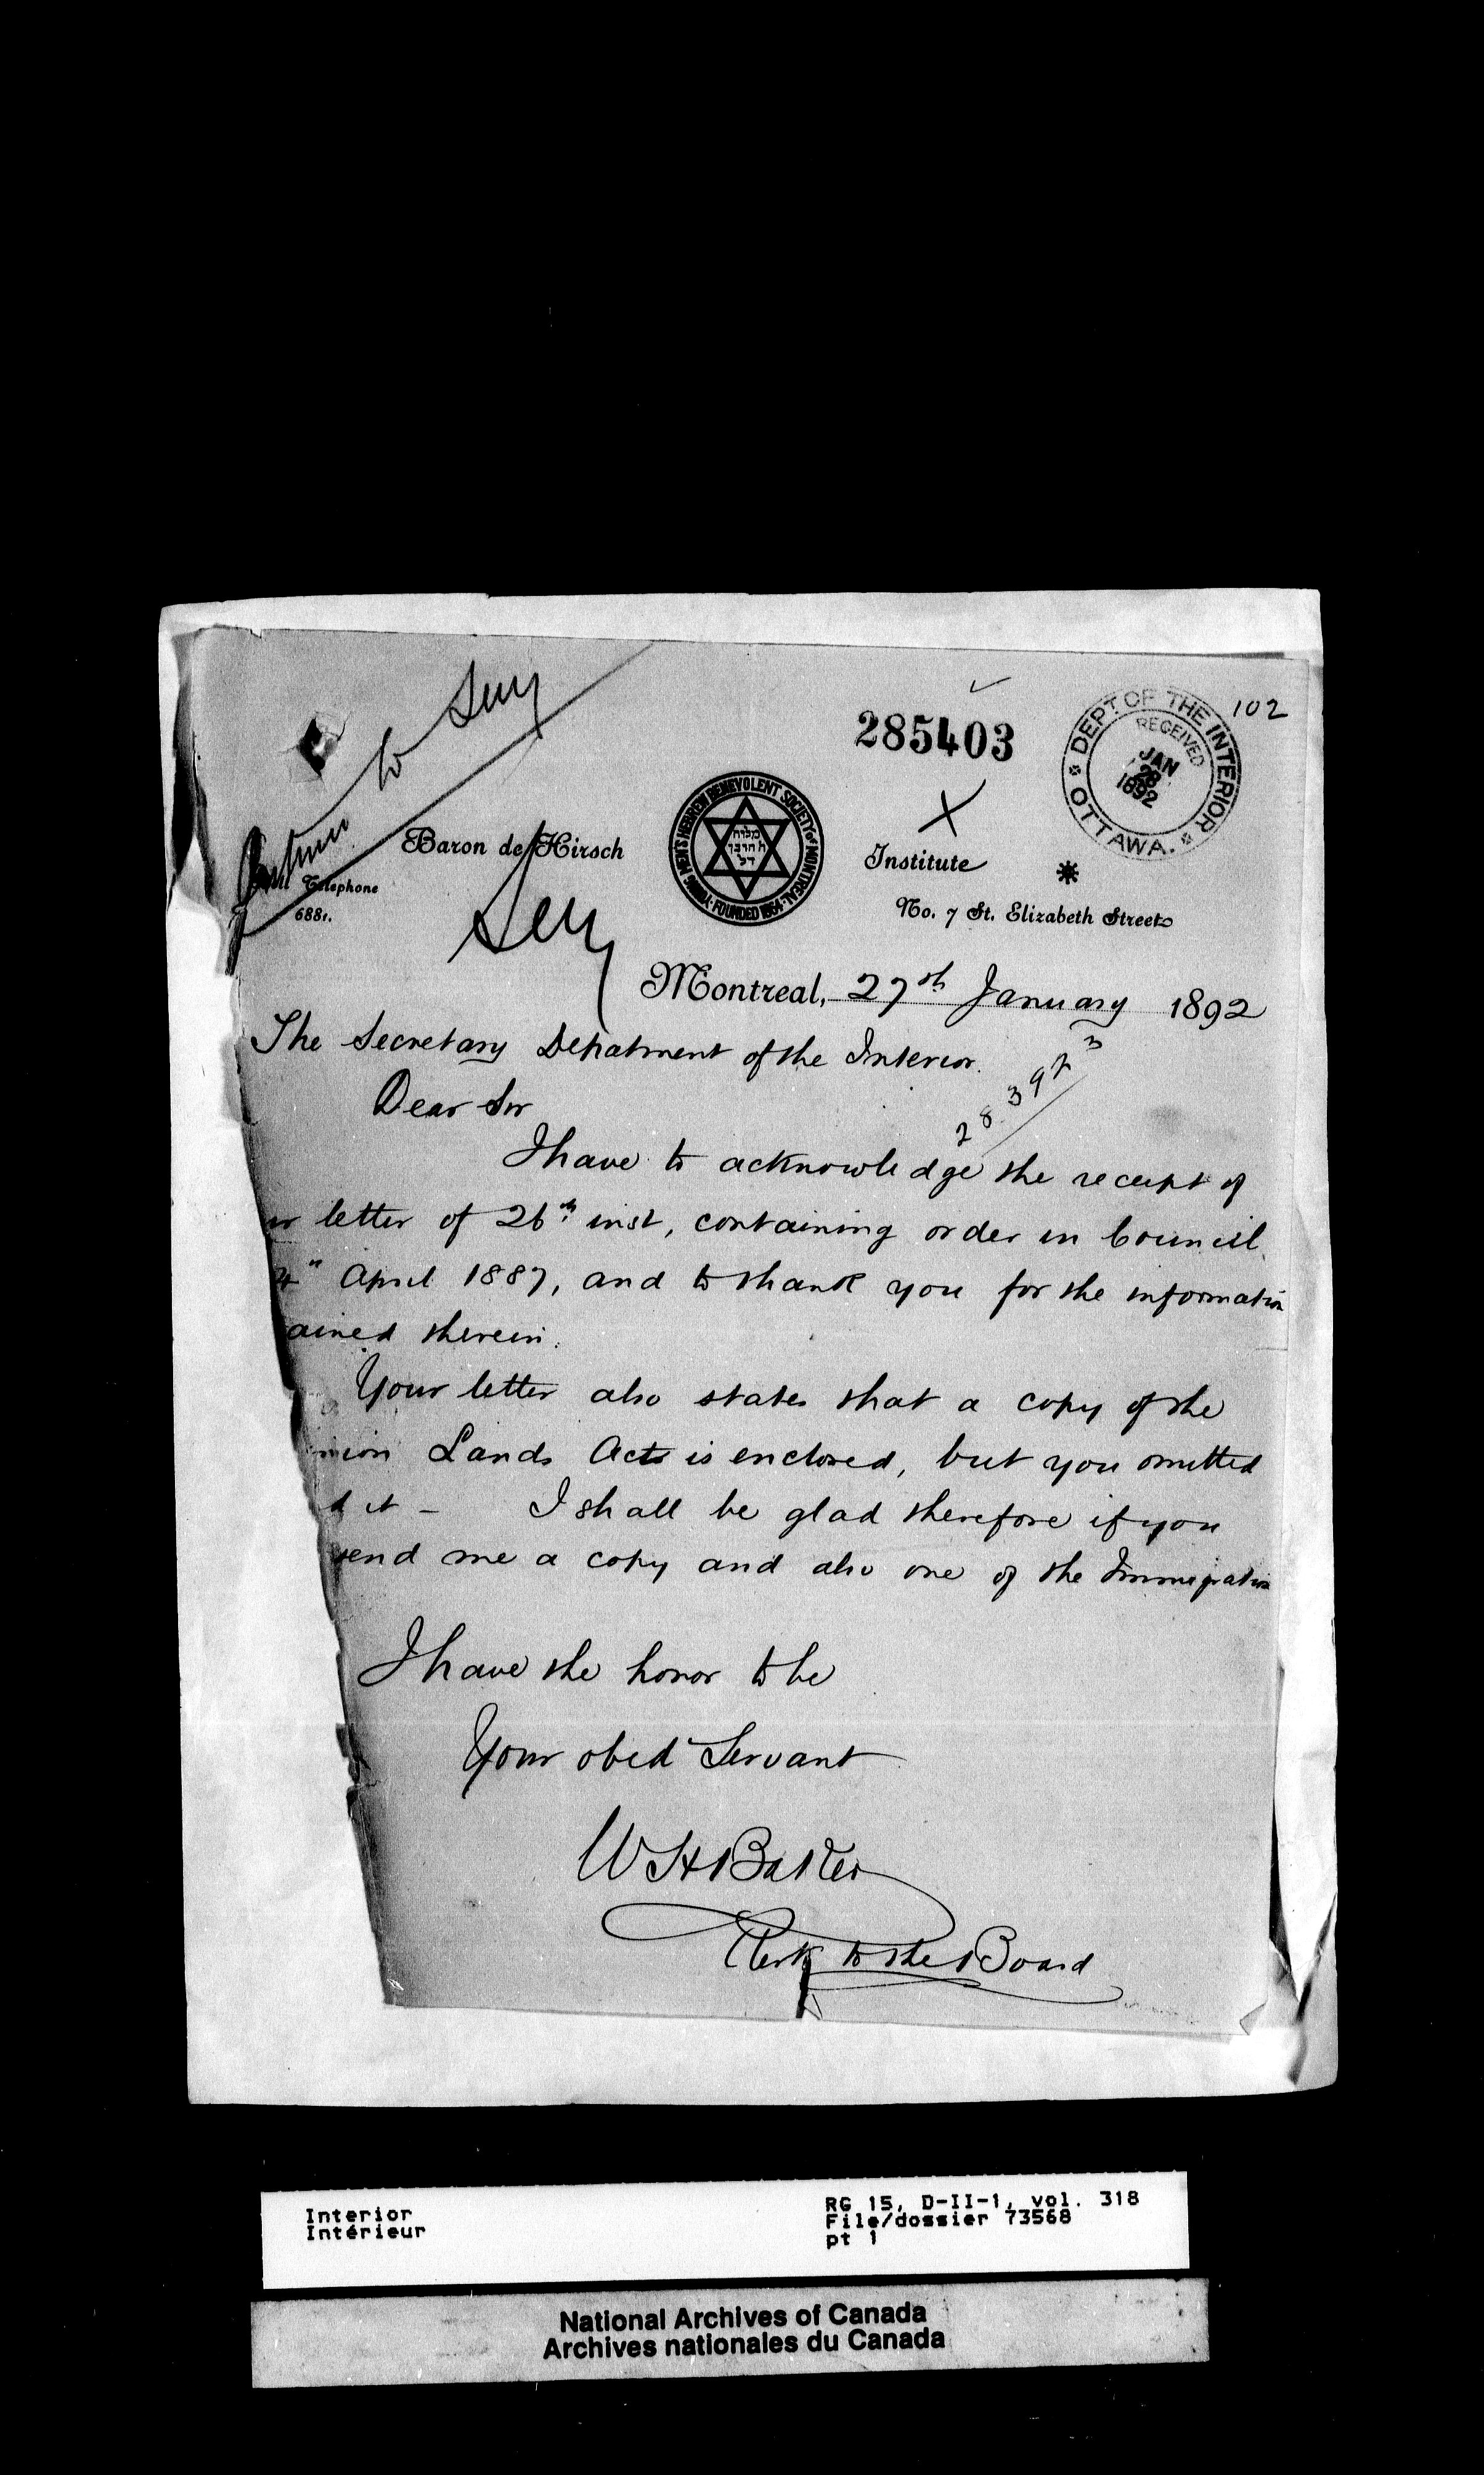 to Secy
285403
102
DEPT. OF THE INTERIOR
RECEIVED
JAN
28
1892
OTTAWA.
YOUNG MEN'S HEBREW BENEVOLENT SOCIETY of MONTREAL
FOUNDED 1864
Baron de Hirsch
Institute
Telephone
6881.
No. 7 St. Elizabeth Street
Secy
Montreal, 27th January 1892
The Secretary Depatment of the Interior.
283923
Dear Sir
I have to acknowledge the receipt of
letter of 26th inst, containing order in Council
April 1887, and to thank you for the information
ained therein.
Your letter also states that a copy of the
nion Lands Acts is enclosed, but you omitted
d it - I shall be glad therefore if you
send me a copy and also one of the Immigration
I have the honor to be
Your obed Servant
W H Baker
Clerk to the Board
Interior
Intérieur
RG 15, D-II-1, vol. 318
File/dossier 73568
pt 1
National Archives of Canada
Archives nationales du Canada